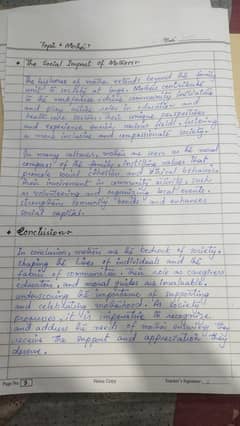 Date
Topic : Mother
• The Social Impact of Mothers:
The influence of mother extends beyond the family
unit to society at large. Mothers contribute
to the workforce, drive community initiatives
and play roles in education and
health care sectors. Their unique perspectives
and experience enrich various fields, fostering
a more inclusive and compassionate society.
In many cultures, mother are seen as the moral
compass of the family, instilling values that
promote social cohesion and ethical behaviour.
Their involvement in community activities, such
as volunteering and organizing local events,
strengthens community bonds and enhances
social capital.
• Conclusion:
In conclusion, mothers are the bedrock of society,
shaping the lives of individuals and the
fabric of communities. Their role as caregivers,
educators, and moral guides are invaluable,
underscoring the importance of supporting
and celebrating motherhood. As society
progresses, it is imperative to recognize
and address the needs of mother ensuring they
receive the support and appreciation they
deserve.
Page No. 3
Veena Copy
Teacher's Signature :